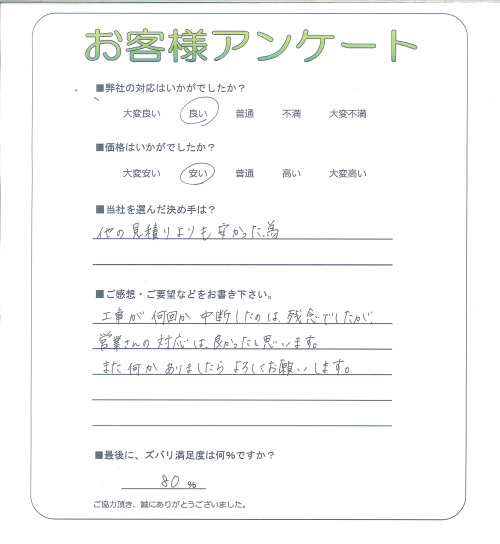 お客様アンケート
■弊社の対応はいかがでしたか？
大変良い 良い 普通 不満 大変不満
■価格はいかがでしたか？
大変安い 安い 普通 高い 大変高い
■当社を選んだ決め手は？
他の見積りよりも安かった為
■ご感想・ご要望などをお書き下さい。
工事が何回か中断したのは、残念でしたが、
営業さんの対応は、良かったと思います。
また何かありましたらよろしくお願いします。
■最後に、ズバリ満足度は何％ですか？
80 %
ご協力頂き、誠にありがとうございました。